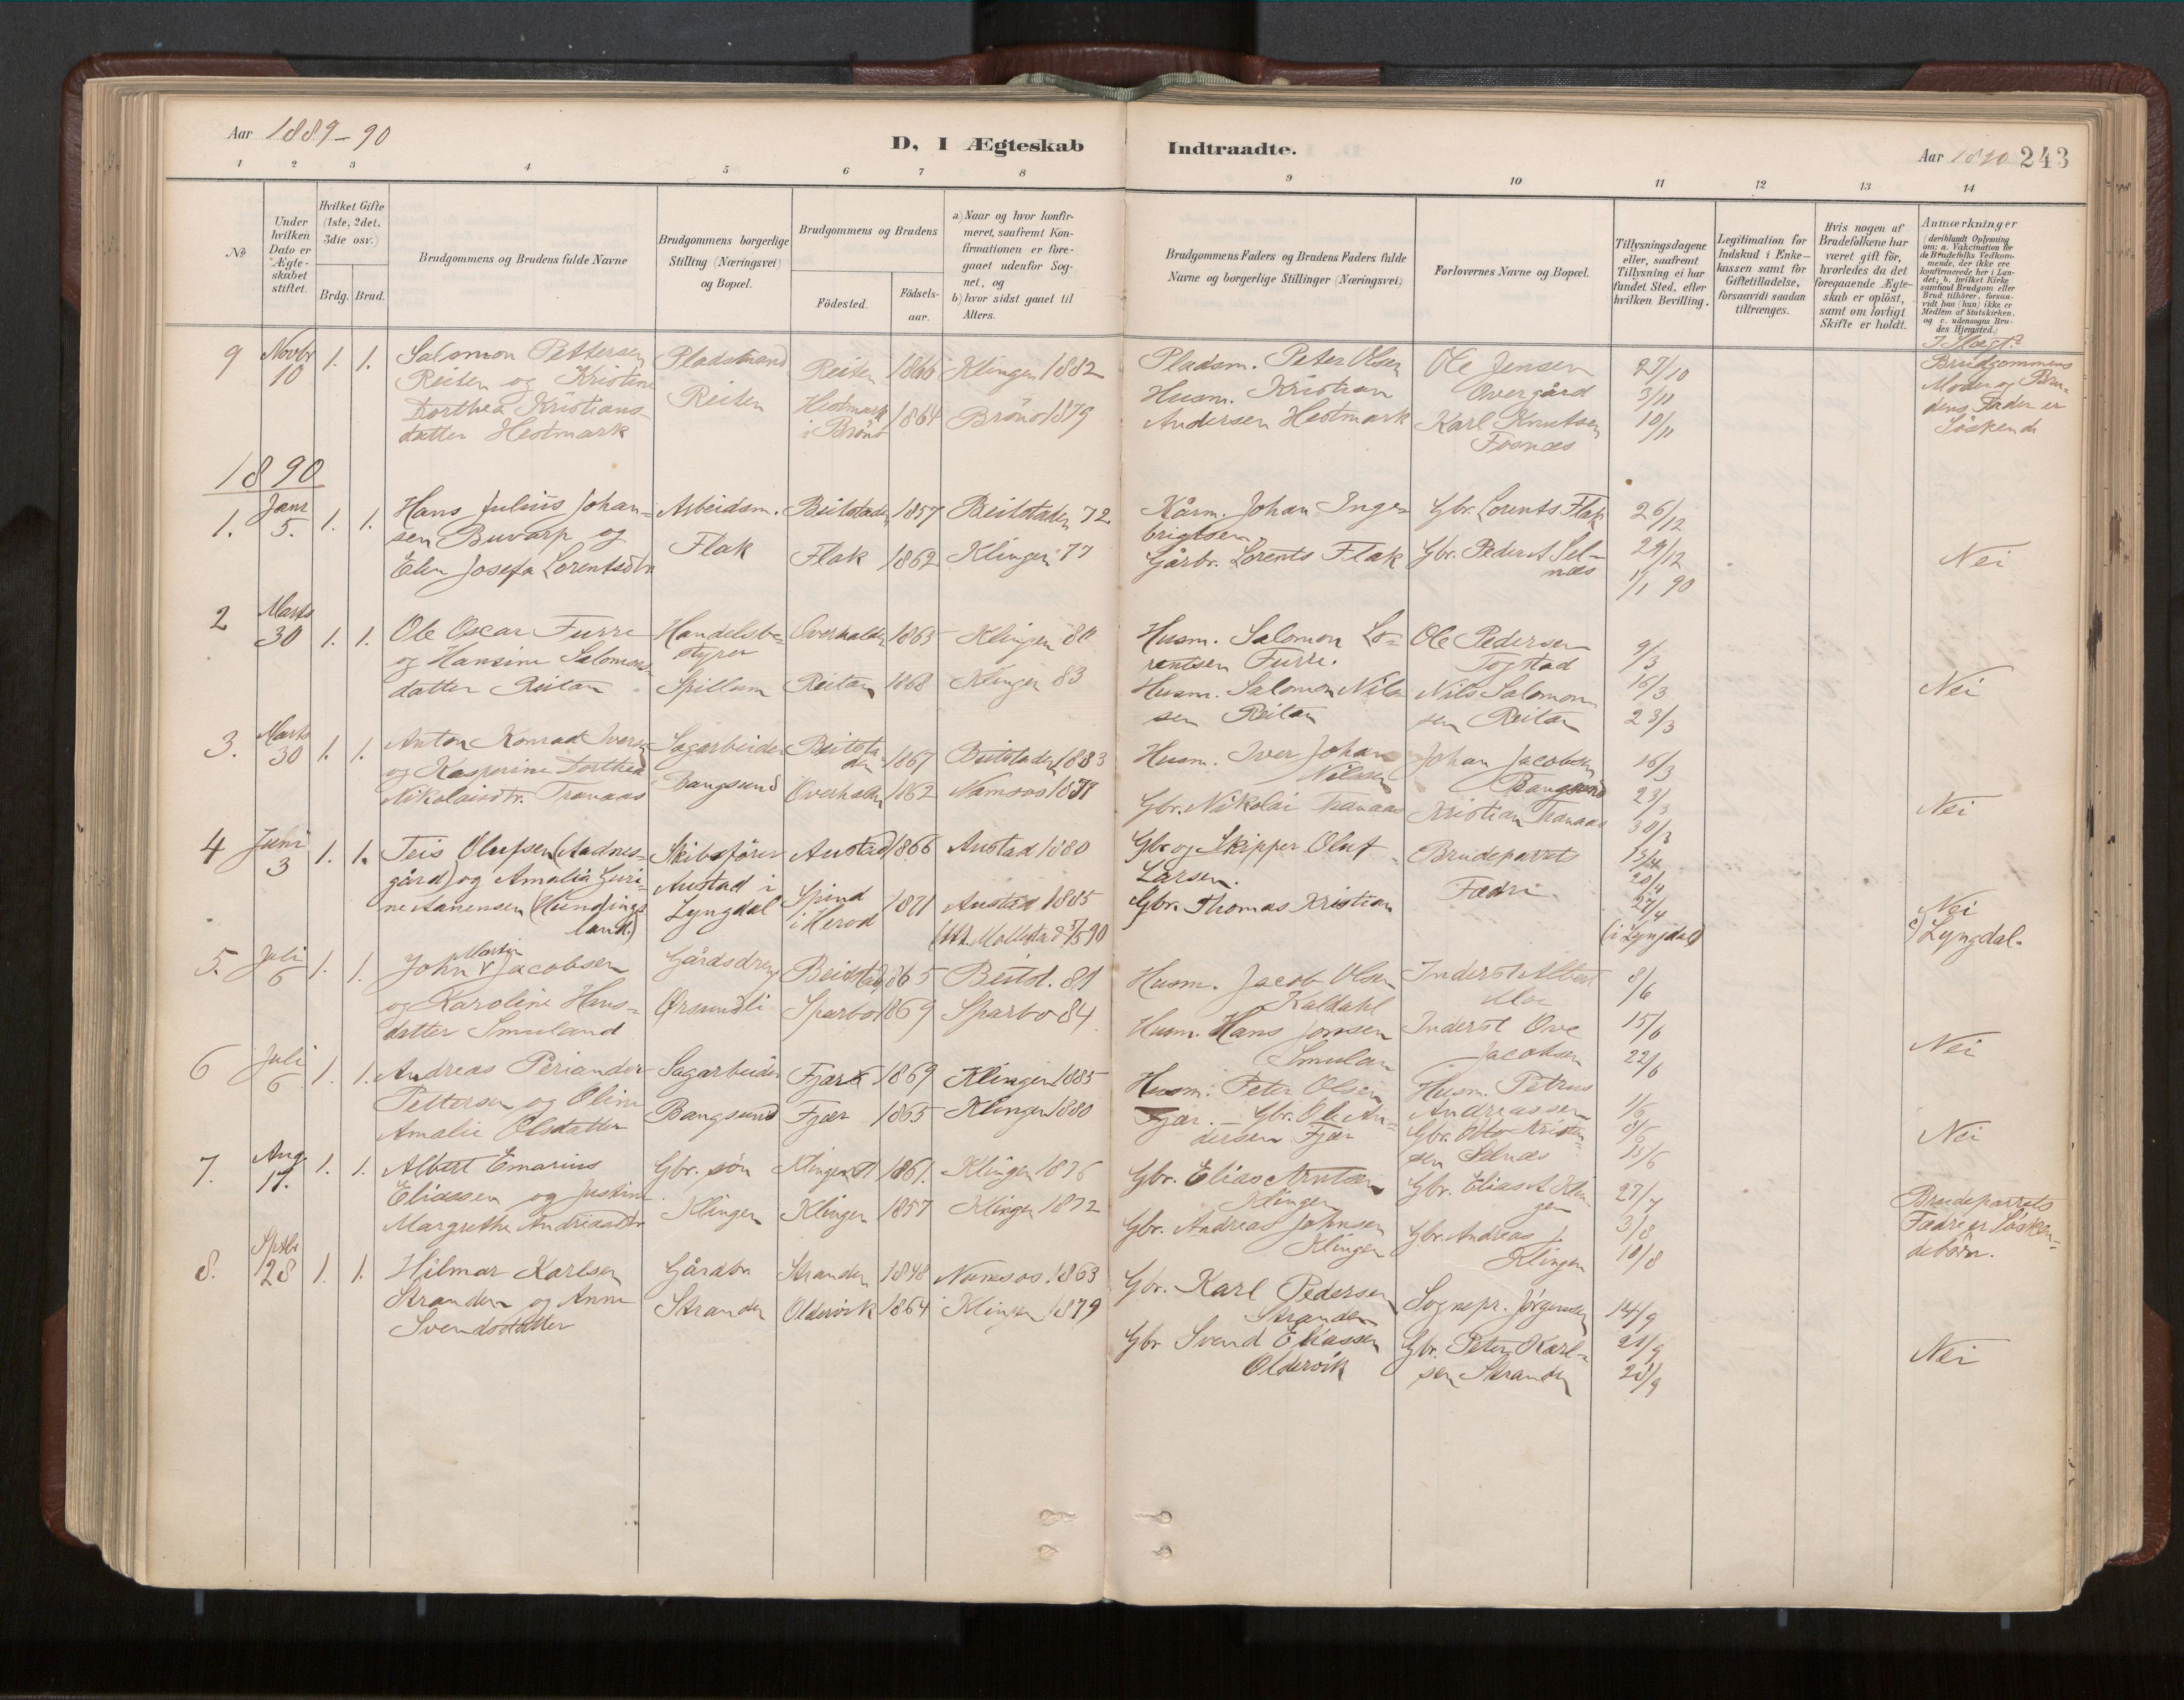 Aar 1889-90
D, I Ægteskab Indtraadte.
Aar 1890 243
1 2 3 4 5 6 7 8 9 10 11 12 13 14
No
Under hvilken Dato er Ægteskabet stiftet.
Hvilket Gifte (1ste, 2det, 3die osv.)
Brdg. Brud.
Brudgommens og Brudens fulde Navne
Brudgommens borgerlige Stilling (Næringsvei) og Bopæl.
Brudgommens og Brudens
Födested. Födsels-aar.
a) Naar og hvor konfirmeret, saafremt Konfirmationen er foregaaet udenfor Sognet, og
b) hvor sidst gaaet til Alters.
Brudgommens Faders og Brudens Faders fulde Navne og borgerlige Stillinger (Næringsvei)
Forlovernes Navne og Bopæl.
Tillysningsdagene eller, saafremt Tillysning ei har fundet Sted, efter hvilken Bevilling.
Legitimation for Indskud i Enkekassen samt for Giftetilladelse, forsaavidt saadan tiltrænges.
Hvis nogen af Brudefolkene har været gift för, hvorledes da det foregaaende Ægteskab er oplöst, samt om lovligt Skifte er holdt.
Anmærkninger
(deriblandt Oplysning om: a. Vakcination for de Brudefolks Vedkommende, der ikke ere konfirmerede her i Landet; b. hvilket Kirkesamfund Brudgom eller Brud tilhörer, forsaavidt han (hun) ikke er Medlem af Statskirken. og c. udensogns Brudes Hjemsted.)
9 Novbr 10 1. 1.
Salomon Pettersen
Reiten og Kristine
Dorthea Kristians-
datter Hestmark
Pladsmand
Reiten
Reiten 1866 Klingen 1882
Hestmark i Brönö 1864 Brönö 1879
Pladsm. Peter Olsen
Husm. Kristian
Andersen Hestmark
Ole Jensen
Overgård
Karl Knutsen
Fosnæs
27/10
3/11
10/11
I Slægt?
Brudgommens
Moder og Bru-
dens Fader er
Söskende
1890
1. Janr 5. 1. 1.
Hans Julius Johan-
sen Buvarp og
Elen Josefa Lorentsdtr
Arbeidsm.
Flak
Beitstaden 1857 Beitstaden 72
Flak 1862 Klingen 77
Kårm. Johan Inge-
brigtsen
Gårbr. Lorents Flak
Gbr. Lorents Flak
Gbr. Peder A Sel-
næs
26/12
29/12
1/1 90
Nei
2 Marts 30 1. 1.
Ole Oscar Furre
og Hansine Salomons
datter Reitan
Handelsbe-
styrer
Spillum
Overhalden 1863 Klingen 80
Reitan 1868 Klingen 83
Husm. Salomon Lo-
rentsen Furre.
Husm. Salomon Nils
sen Reitan
Ole Pedersen
Togstad
Nils Salomon
sen Reitan
9/3
16/3
23/3
Nei
3. Marts 30 1. 1.
Anton Konrad Iversen
og Kasperine Dorthea
Nikolaisdtr. Tranaas
Sagarbeider
Bangsund
Beitsta
den 1867 Beitstaden 1883
Overhalden 1862 Namsos 1879
Husm. Iver Johan
Nilssen
Gbr. Nikolai Tranaas
Johan Jacobsen
Bangsund
Kristian Tranaas
16/3
23/3
30/3
Nei
4 Juni 3 1. 1.
Teis Olufsen (Aadnes-
gård) og Amalia Guri-
ne Aanensen (Hundings
land.)
Skibsförer
Austad i
Lyngdal
Austad 1866 Austad 1880
Spind
i Herod 1871 Austad 1885
Gbr og Skipper Oluf
Larsen.
Gbr. Thomas Kristian
Brudeparrets
Fædre
13/4
20/4
27/4
(i Lyngdal)
Nei
c) Lyngdal.
5. Juli 6 1. 1.
John Martin Jacobsen
og Karoline Hans-
datter Smuland
Gårdsdreng
Örsundli
Beidstad 1865 Beitst. 81
Sparbo 1869 Sparbo 84
Husm. Jacob Olsen
Kaldahl
Husm. Hans Jonsen
Smulan
Inderst Albert
Moe
Inderst Ove
Jacobsen
8/6
15/6
22/6
Nei
6 Juli 6 1. 1.
Andreas Periander
Pettersen og Oline
Amalie Olsdatter
Sagarbeider
Bangsund
Fjær 1869 Klingen 1885
Fjær 1865 Klingen 1880
Husm. Peter Olsen
Fjær. - Gbr. Ole An-
dersen Fjær
Husm. Petrus
Andreassen
Gbr. Otto Kristen-
sen Selnæs
1/6
8/6
15/6
Nei
7. Aug 17. 1. 1.
Albert Emarius
Eliassen og Justine
Margrethe Andreasdtr
Gbr. søn
Klingen
Klingen 1861. Klingen 1876
Klingen 1857 Klingen 1872
Gbr. Elias Arntsen
Klingen
Gbr. Andreas Johnsen
Klingen
Gbr. Elias A Klin
gen
Gbr. Andreas J.
Klingen
27/7
3/8
10/8
Brudeparrets
Fædre er Sösken-
debörn.
8. Septbr 28 1. 1.
Hilmar Karlsen
Stranden og Anne
Svendsdatter
Gårdbr
Stranden
Stranden 1848 Namsos 1863
Oldervik 1864 Klingen 1879
Gbr. Karl Pedersen
Stranden
Gbr Svend Eliassen
Oldervik
Sognepr. Jörgensen
Gbr. Peter Karl-
sen Stranden
14/9
21/9
28/9
Nei